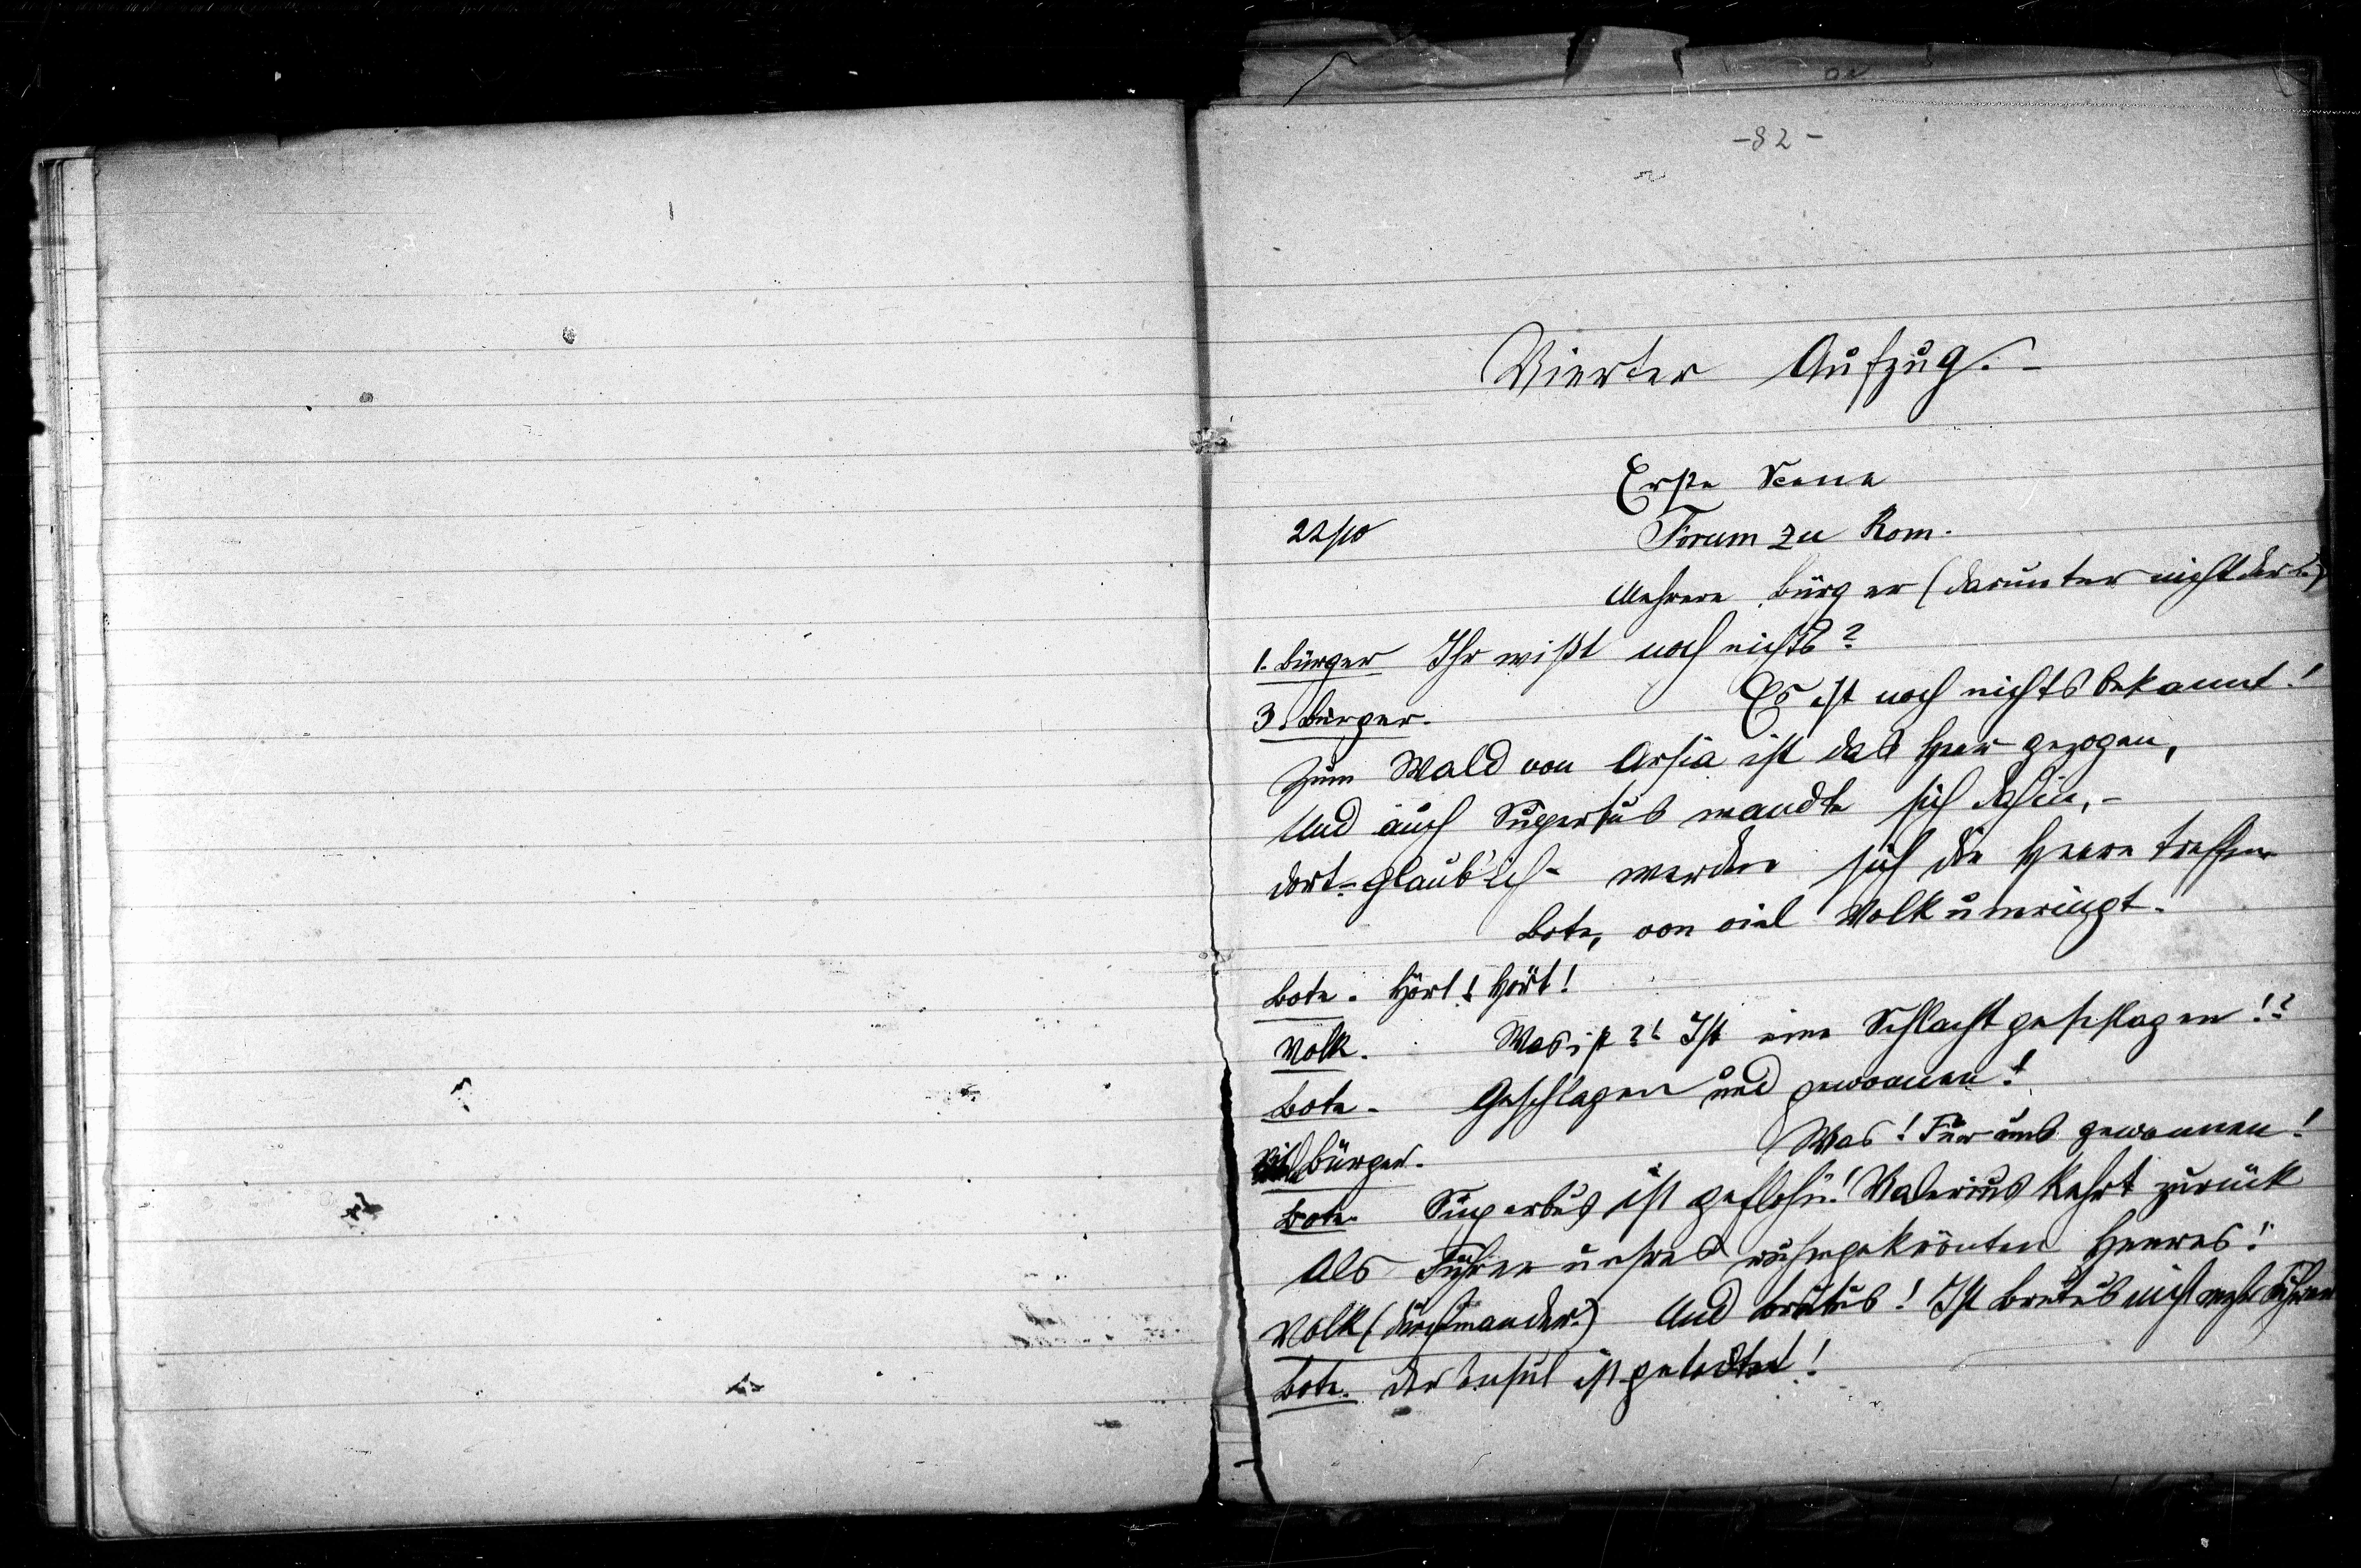 -82-
Vierter Aufzug.-
Erste Scene
22/10 Forum zu Rom.
Mehrere Bürger (darunter nicht der 2.)
1. Bürger Ihr wißt noch nichts?
3. Bürger. Es ist noch nichts bekannt!
Zum Wald von Arsia ist das Heer gezogen,
Und auch Superbus wandte sich dahin,-
dort - glaub' ich - werden sich die Heere treffen
Bote, von viel Volk umringt.
Bote. Hört! Hört!
Volk. Was ist?! Ist eine Schlacht geschlagen!?
Bote. Geschlagen und gewonnen!
Bürger. Was! Für uns gewonnen!
Bote. Superbus ist geflohn! Valerius kehrt zurück
Als Führer unsres ruhmgekrönten Heeres!
Volk (durcheinander.) Und Brutus! Ist Brutus nicht mehr Führer
Bote. Der Consul ist getödtet!